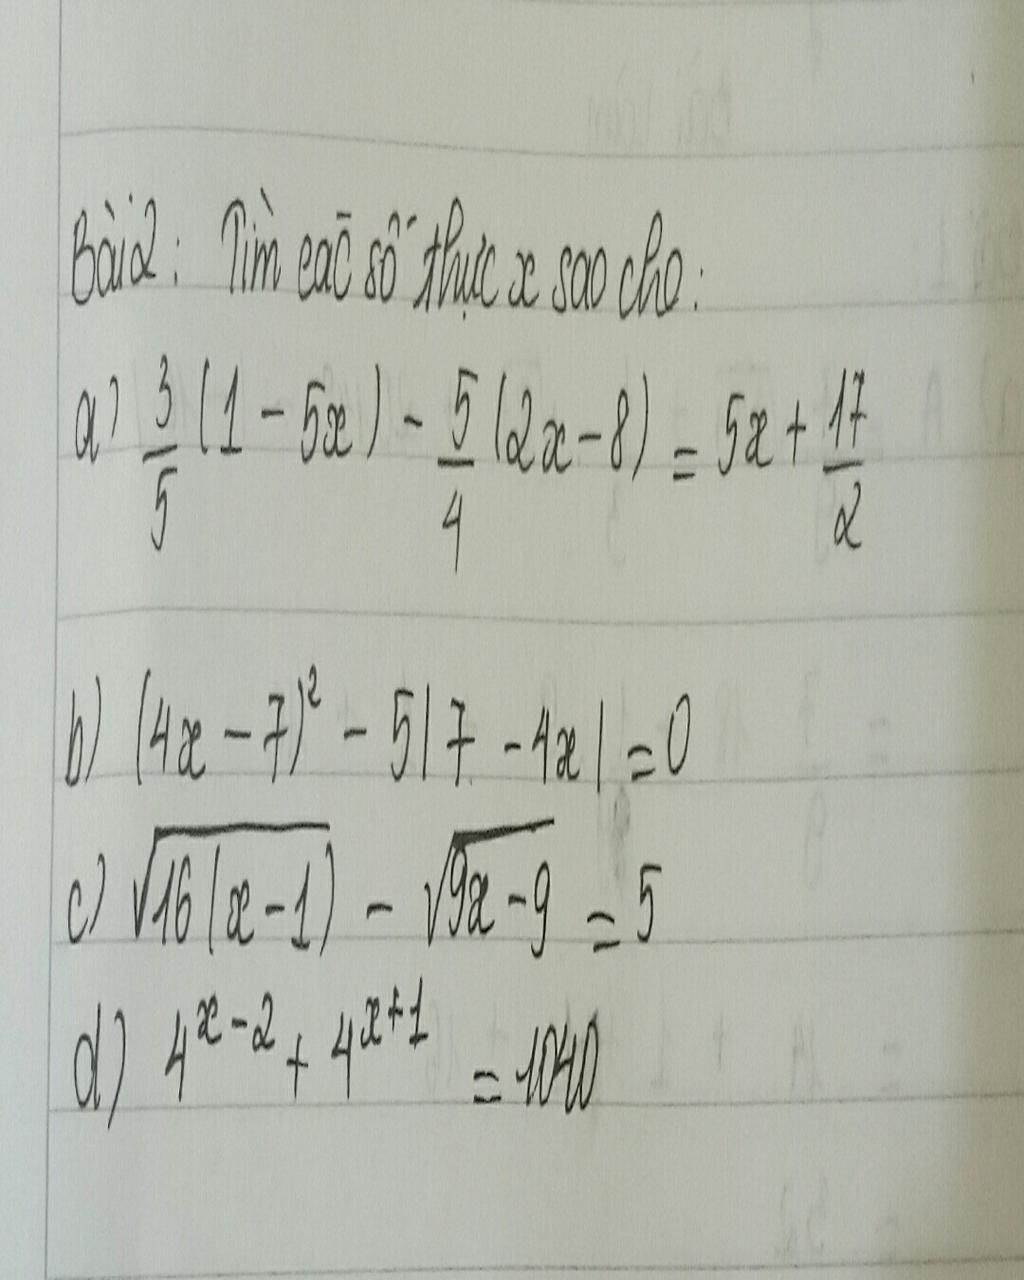 Bài 2: Tìm các số thực x sao cho:
a) 3/5 (1 - 5x) - 5/4 (2x - 8) = 5x + 17/2
b) (4x - 7)² - 5|7 - 4x| = 0
c) √(16(x - 1)) - √(9x - 9) = 5
d) 4^(x-2) + 4^(x+1) = 1040